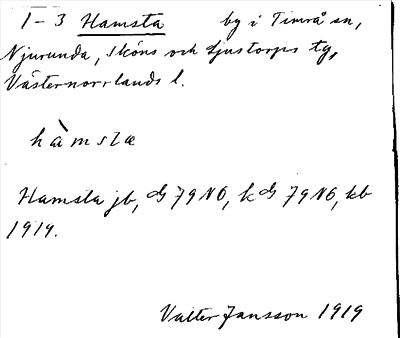 1-3 Hamsta by i Timrå sn,
Njurunda, Sköns och Ljustorps tg,
Västernorrlands l.
hàmsta
Hamsta jb, GS 79 NO, k GS 79 NO, kb
1919.
Valter Jansson 1919